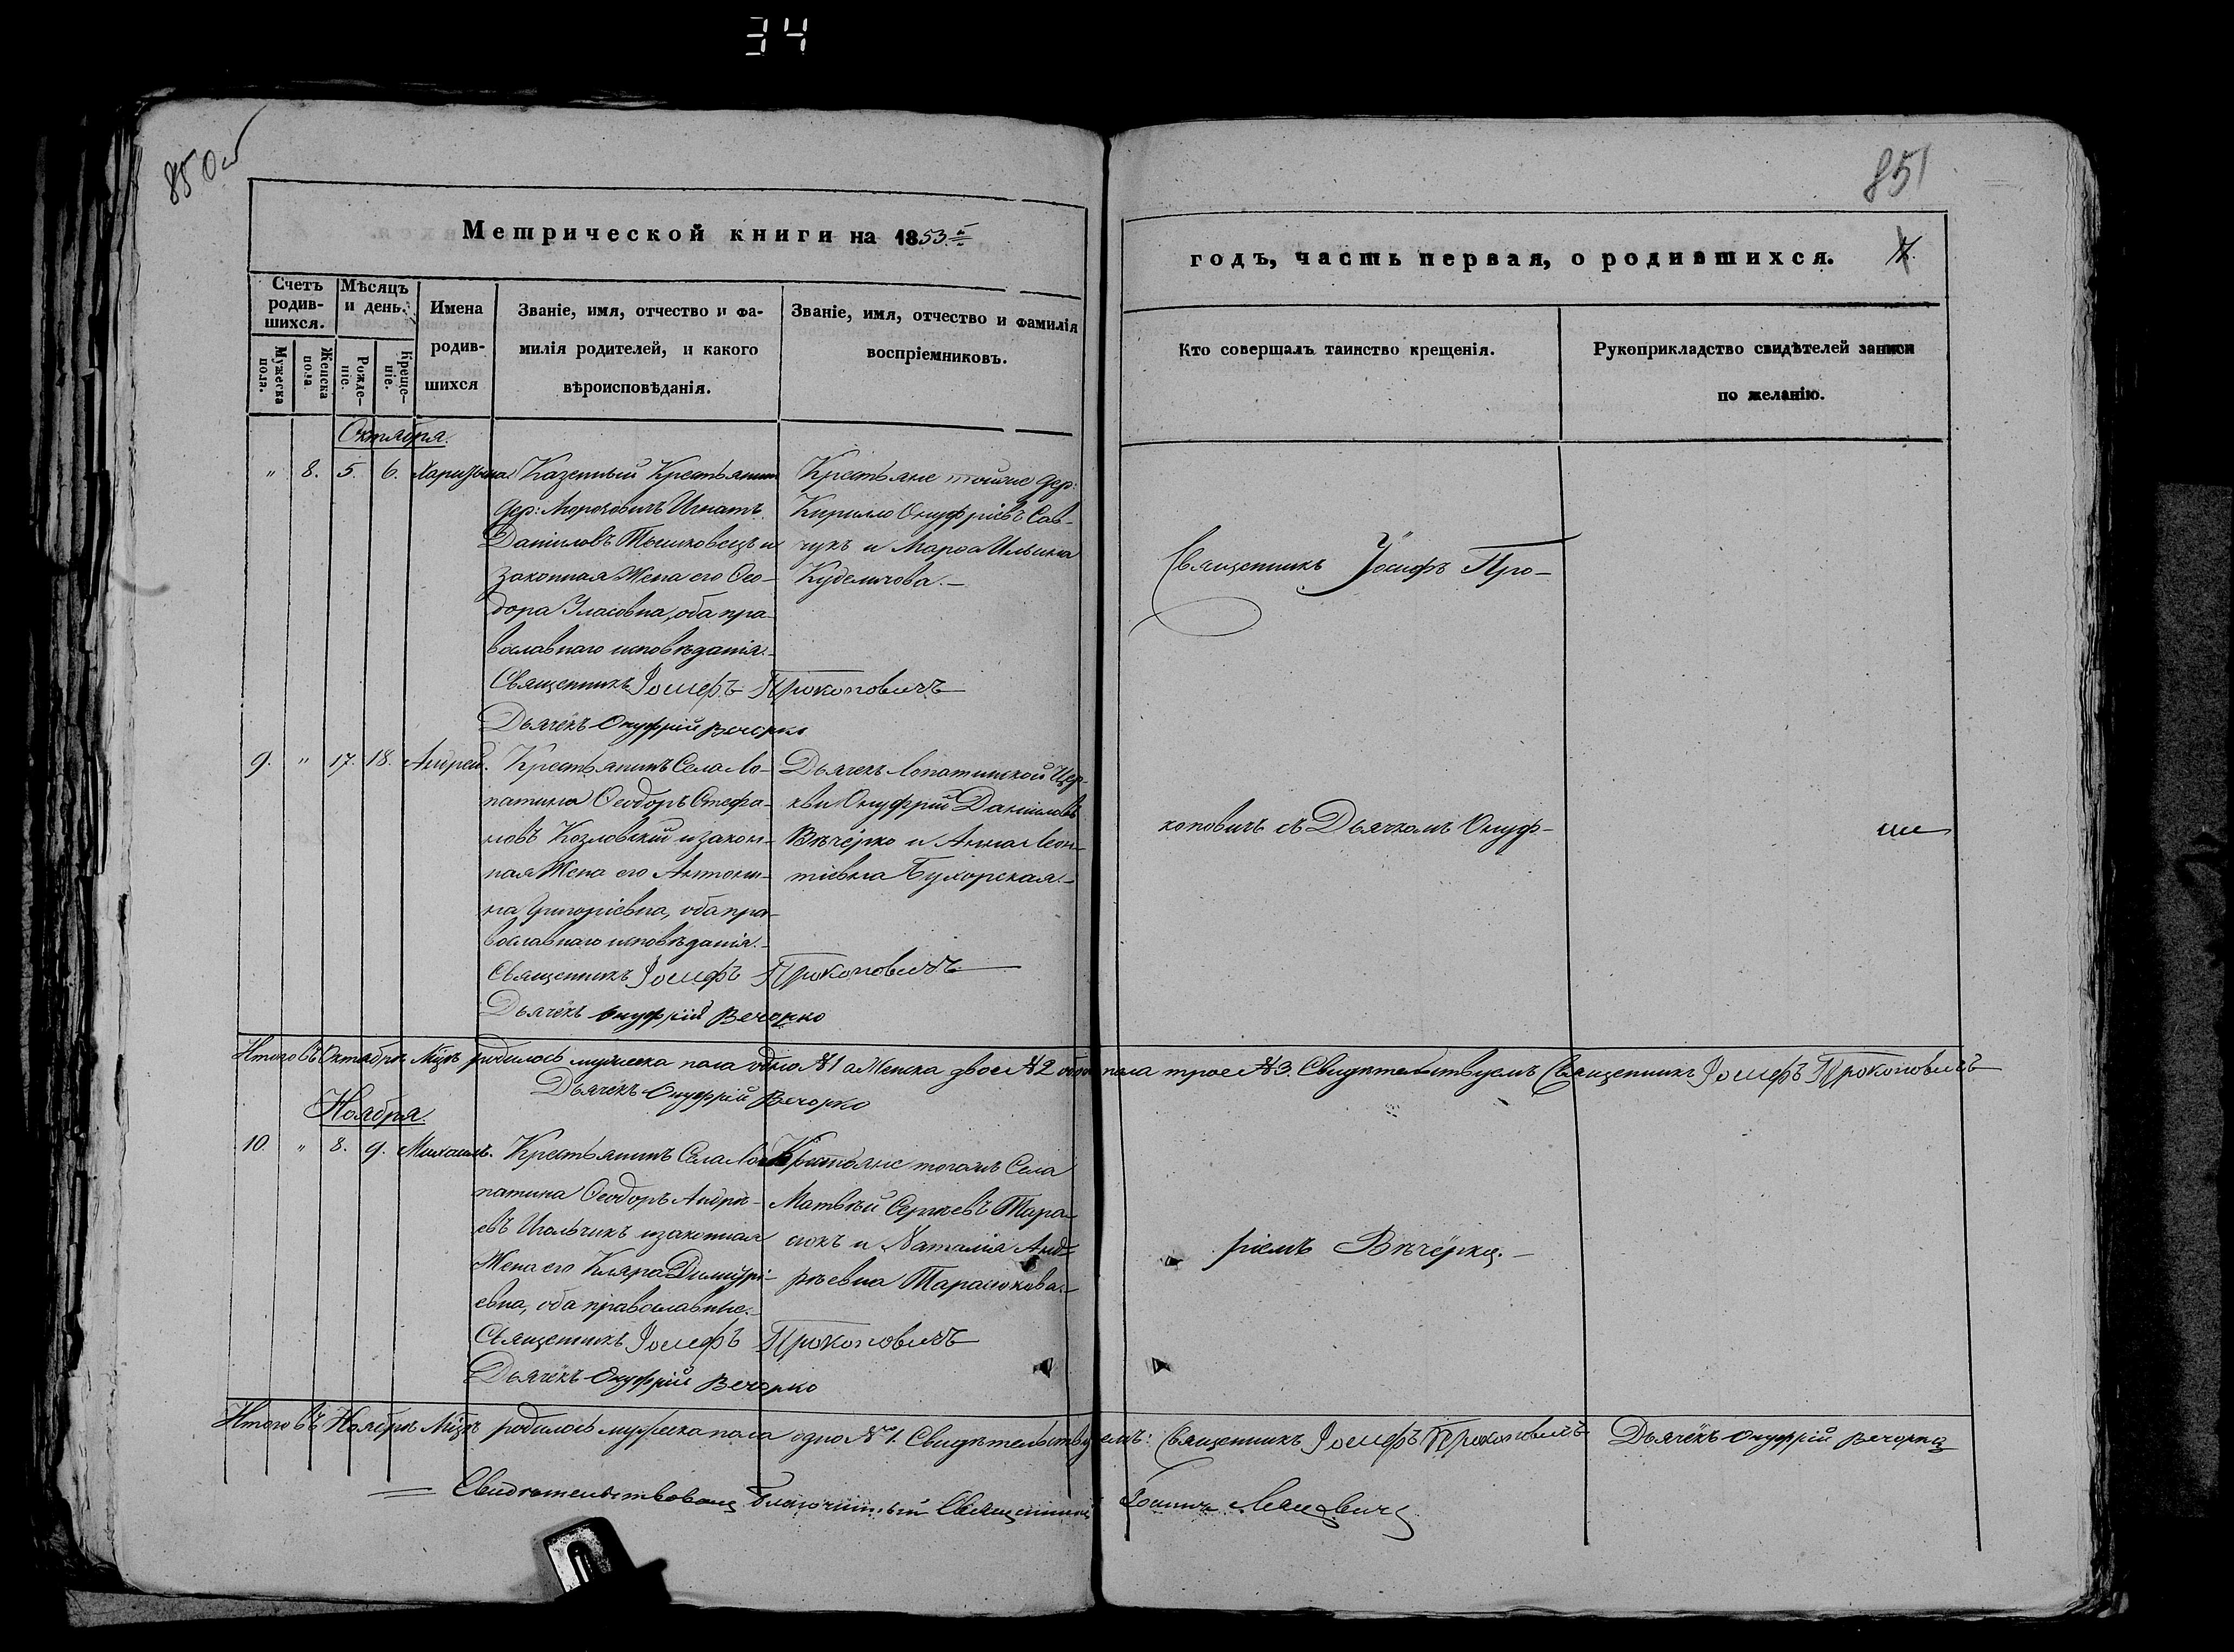 34
850об
851
Метрической книги на 1853й
годъ, часть первая, о родившихся.
Счетъ родив-шихся.
Мѣсяцъ и день.
Имена родив-шихся
Званіе, имя, отчество и фа-
милія родителей, и какого
вѣроисповѣданія.
Званіе, имя, отчество и фамилія
воспріемниковъ.
Кто совершалъ таинство крещенія.
Рукоприкладство свидѣтелей записи
по желанію.
Мужеска пола.
Женска пола
Рожде-ніе.
Креще-ніе.
Октября.
" 8. 5. 6. Харитына
Казенный Крестьянинъ
дер: Морочовичъ Игнатъ
Даніиловъ Тышковецъ и
законная Жена его Ѳео-
дора Власовна, оба пра-
вославнаго исповѣданія.-
Священникъ Іосифъ Прокоповичъ
Дьячекъ Онуфрій Вечорко
Крестьяне тойже дер:
Кирилло Онуфріевъ Сав-
чукъ и Марѳа Ильина
Куделичова.-
Священникъ Іосифъ Про-
9. " 17. 18. Андрей.
Крестьянинъ Села Ло-
патина Ѳеодоръ Стефа-
новъ Козловскій и закон-
ная Жена его Антони-
на Григоріевна, оба пра-
вославнаго исповѣданія.-
Священникъ Іосифъ Прокоповичъ
Дьячекъ Онуфрій Вечорко
Дьячекъ Лопатинской Цер-
кви Онуфрій Даніиловъ
Вѣчёрко и Анна Леон-
тіевна Бухорская.-
коповичъ съ Дьячкомъ Онуф-
Итого въ Октябрѣ Мцѣ родилось мужеска пола одно № 1 а Женска двое № 2 обоего пола трое № 3. Свидѣтельствуемъ Священникъ Іосифъ Прокоповичъ
Дьячекъ Онуфрій Вечорко
Ноября.
10. " 8. 9. Михаилъ.
Крестьянинъ Села Ло-
патина Ѳеодоръ Андре-
евъ Игольчикъ и законная
Жена его Кляра Димитрі-
евна, оба православные.-
Священникъ Іосифъ Прокоповичъ
Дьячекъ Онуфрій Вечорко
Крестьяне тогожъ Села
Матвѣй Сергѣевъ Тара-
сюкъ и Наталія Анд-
реевна Тарасюкова.-
ріемъ Вѣчёрка.-
Итого въ Ноябрѣ Мцѣ родилось мужеска пола одно № 1. Свидѣтельствуемъ: Священникъ Іосифъ Прокоповичъ Дьячекъ Онуфрій Вечорко
Свидѣтельствовалъ Благочинный Священникъ